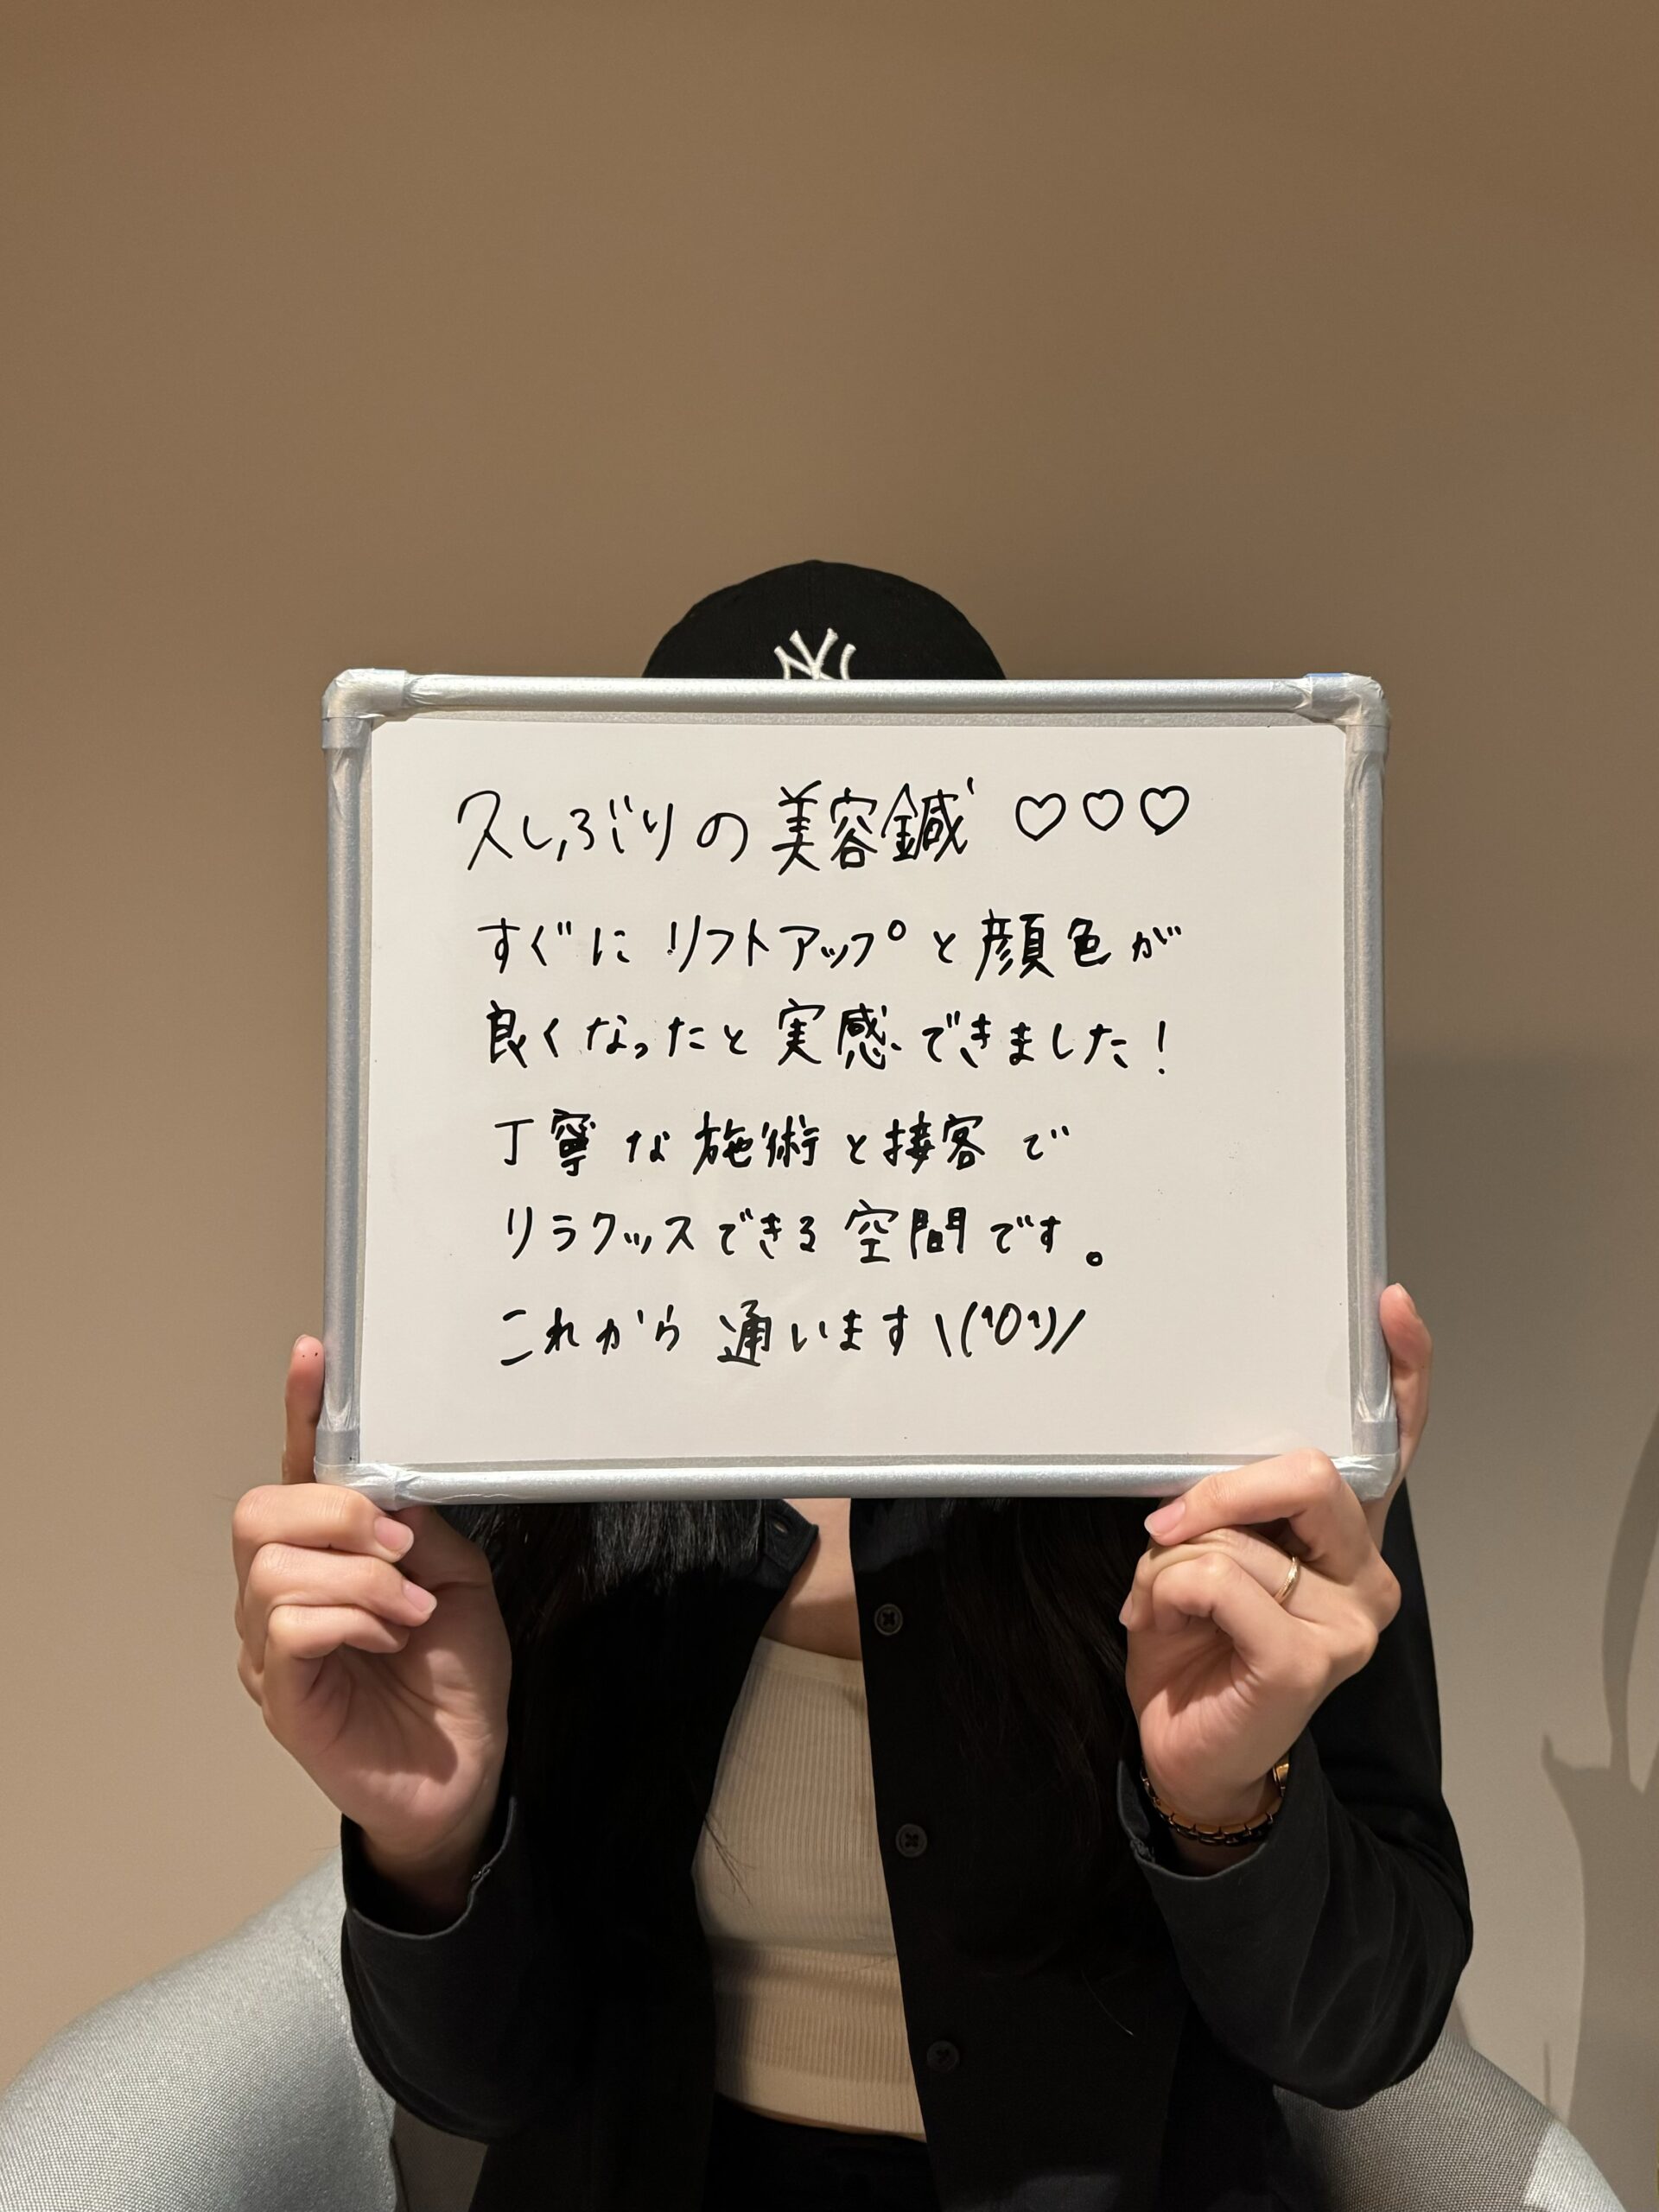 NY
久しぶりの美容鍼♡♡♡
すぐにリフトアップと顔色が
良くなったと実感できました！
丁寧な施術と接客で
リラックスできる空間です。
これから通います\(^O^)/